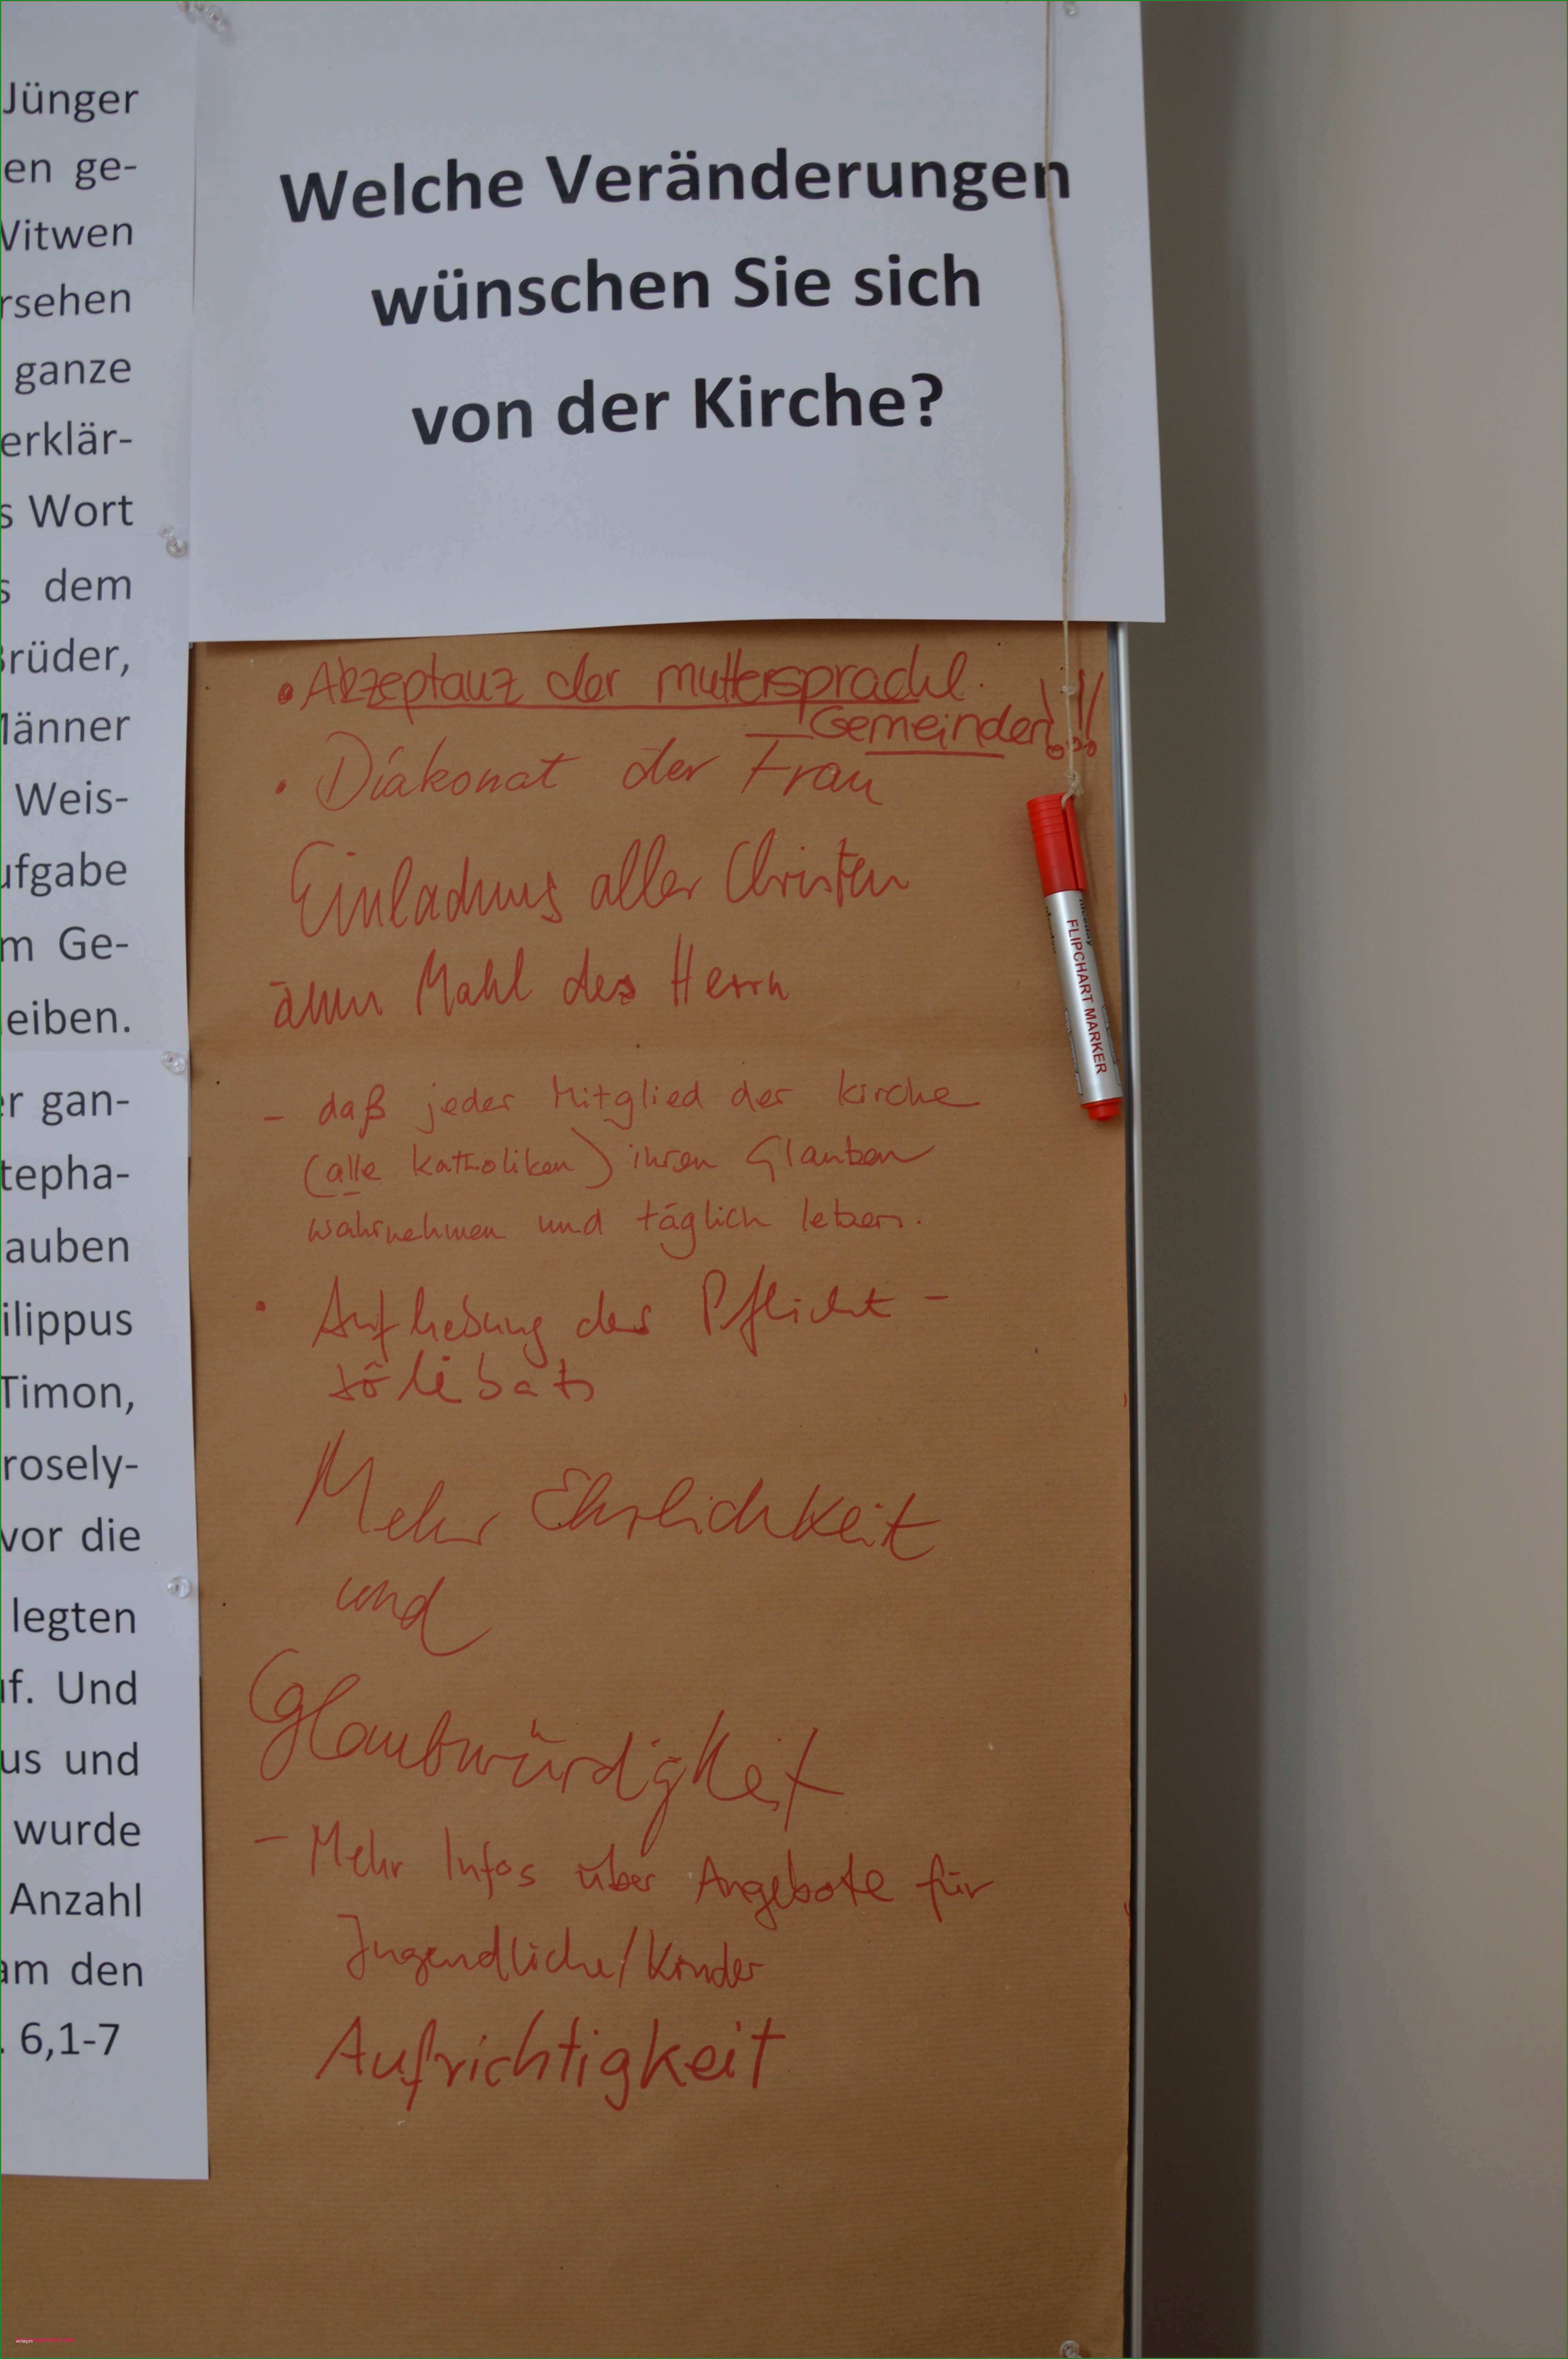 Jünger
en ge-
Witwen
rsehen
ganze
erklär-
s Wort
s dem
Brüder,
Männer
Weis-
ufgabe
m Ge-
eiben.
er gan-
tepha-
auben
ilippus
Timon,
rosely-
vor die
legten
uf. Und
us und
wurde
Anzahl
am den
. 6,1-7
Welche Veränderungen
wünschen Sie sich
von der Kirche?
• Akzeptanz der muttersprachl.
Gemeinden!!!
• Diakonat der Frau
Einladung aller Christen
Mahl des Herrn
– daß jeder Mitglied der Kirche
(alle Katholiken) ihren Glauben
wahrnehmen und täglich leben.
• Aufhebung des Pflicht-
zölibats
Mehr Ehrlichkeit
und
Glaubwürdigkeit
– Mehr Infos über Angebote für
Jugendliche/Kinder
Aufrichtigkeit
FLIPCHART MARKER